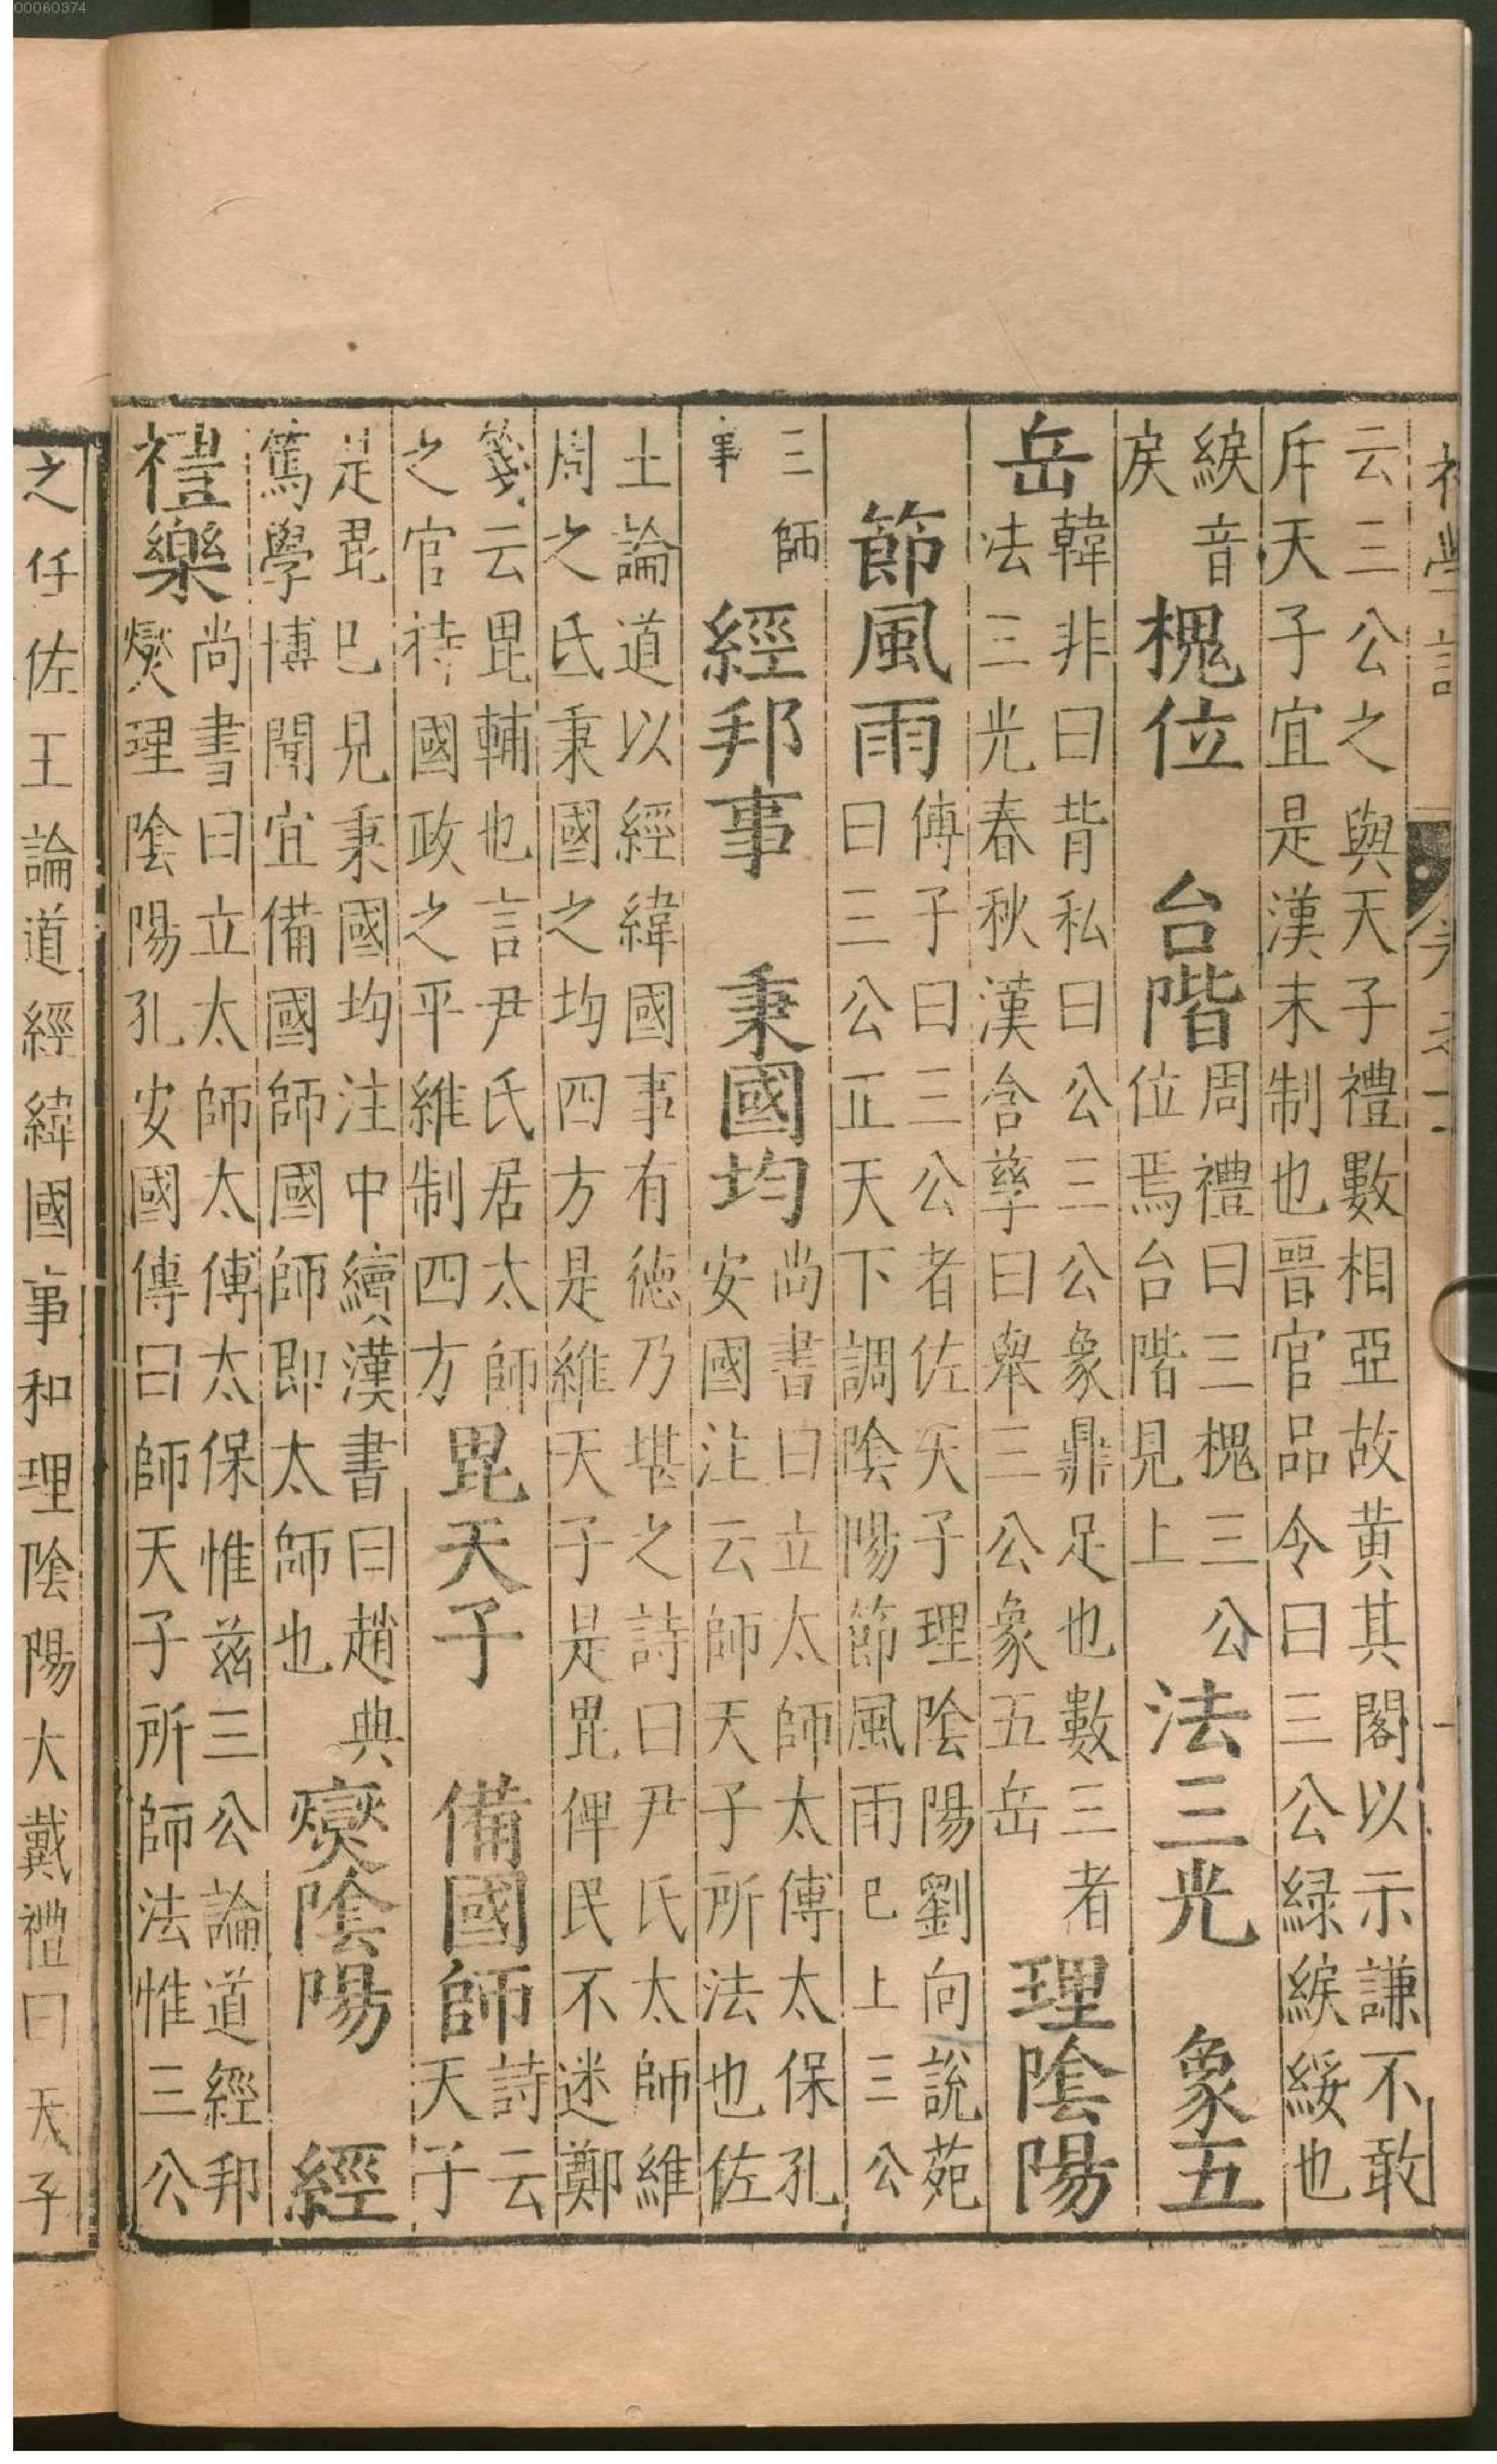 00060374
云三公之與天子禮數相亞故黃其閣以示謙不敢
斥天子宜是漢末制也晉官品令曰三公緑綟綬也
綟音戾 槐位 台階 周禮曰三槐三公位焉台階見上 法三光 象五
岳 韓非曰背私曰公三公象鼎足也數三者法三光春秋漢含孳曰舉三公象五岳 理陰陽
節風雨 傅子曰三公者佐天子理陰陽劉向說苑曰三公正天下調陰陽節風雨已上三公
三師事 經邦事 秉國均 尚書曰立太師太傅太保孔安國注云師天子所師法也佐
土論道以經緯國事有德乃堪之詩曰尹氏太師維
周之氐秉國之均四方是維天子是毘俾民不迷鄭
箋云毘輔也言尹氏居太師之官持國政之平維制四方 毘天子 備國師 詩云天子
是毘已見秉國均注中續漢書曰趙典篤學博聞宜備國師國師即太師也 燮陰陽 經
禮樂 尚書曰立太師太傅太保惟茲三公論道經邦燮理陰陽孔安國傳曰師天子所師法惟三公
之任佐王論道經緯國事和理陰陽大戴禮曰天子